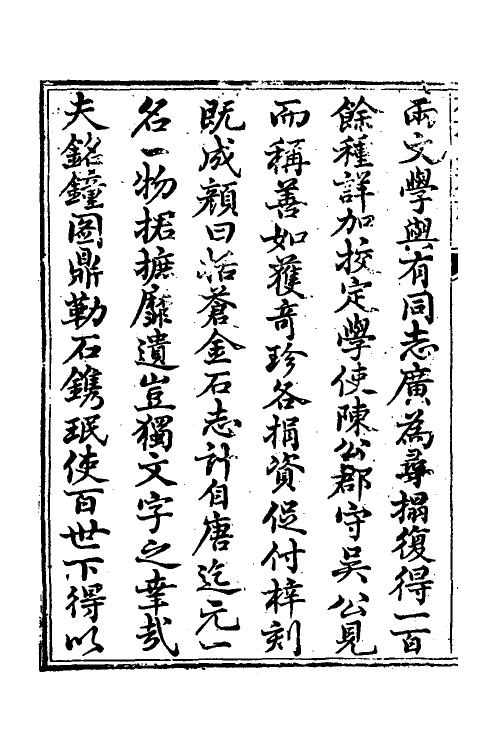 兩文學與有同志廣為尋搨復得一百
餘種詳加挍定學使陳公郡守吳公見
而稱善如獲竒珍各捐資促付梓刻
既成顏曰括蒼金石志計自唐迄元一
名一物捃摭靡遺豈獨文字之幸哉
夫銘鐘圖鼎勒石鐫珉使百世下得以